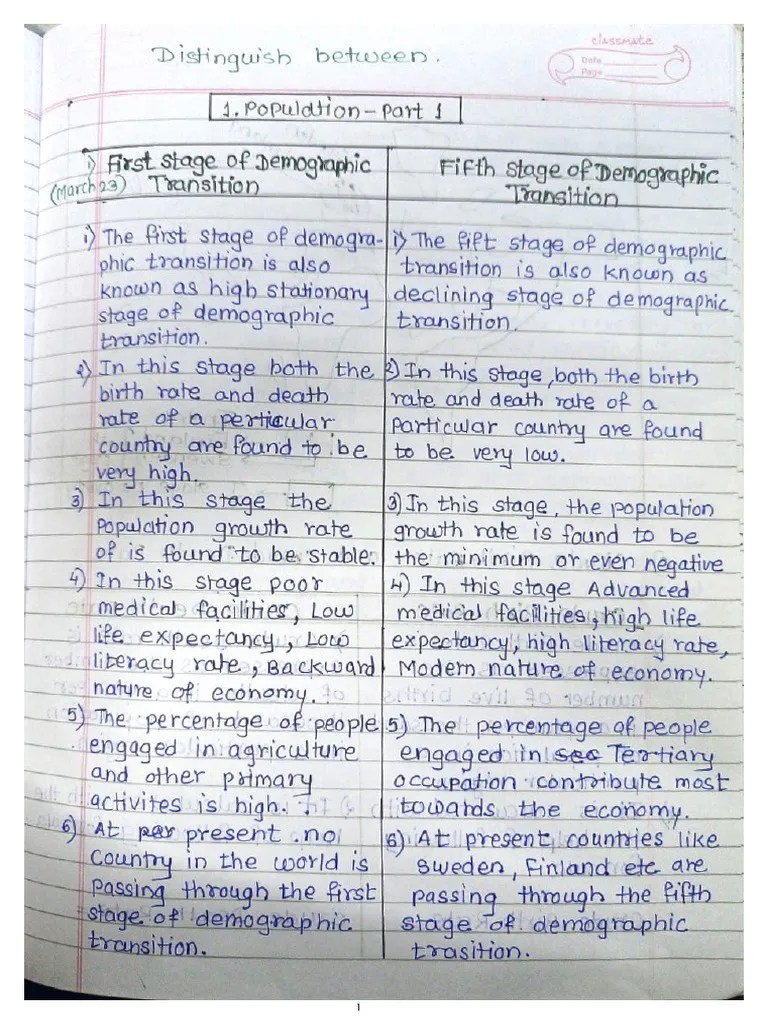 classmate
Date
Page
Distinguish between.
1. Population - Part 1
i) First stage of Demographic
(March 23) Transition
i) The first stage of demogra-
phic transition is also
known as high stationary
stage of demographic
transition.
2) In this stage both the
birth rate and death
rate of a perticular
country are found to be
very high.
3) In this stage the
population growth rate
of is found to be stable.
4) In this stage poor
medical facilities, Low
life expectancy, Low
literacy rate, Backward
nature of economy.
5) The percentage of people
engaged in agriculture
and other primary
activites is high.
6) At par present no
country in the world is
passing through the first
stage of demographic
transition.
Fifth stage of Demographic
Transition
i) The fift stage of demographic
transition is also known as
declining stage of demographic
transition.
2) In this stage, both the birth
rate and death rate of a
particular country are found
to be very low.
3) In this stage, the population
growth rate is found to be
the minimum or even negative
4) In this stage Advanced
medical facilities, high life
expectancy, high literacy rate,
Modern nature of economy.
5) The percentage of people
engaged in sec Tertiary
occupation contribute most
towards the economy.
6) At present countries like
Sweden, Finland etc are
passing through the fifth
stage of demographic
trasition.
1